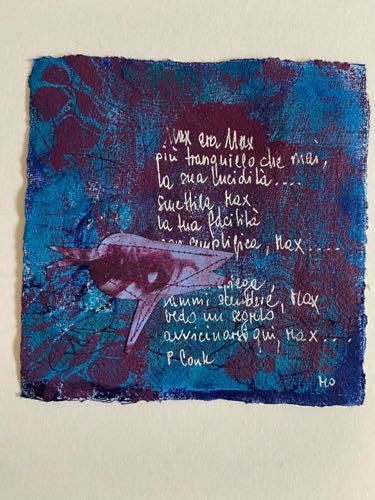 Max era Max
più tranquillo che mai,
la sua lucidità....
smettila, Max
la tua facilità
semplifica, Max.....
spiega,
fammi scendere, Max
vedo un segreto
avvicinarsi qui, Max....
P Conte
MO